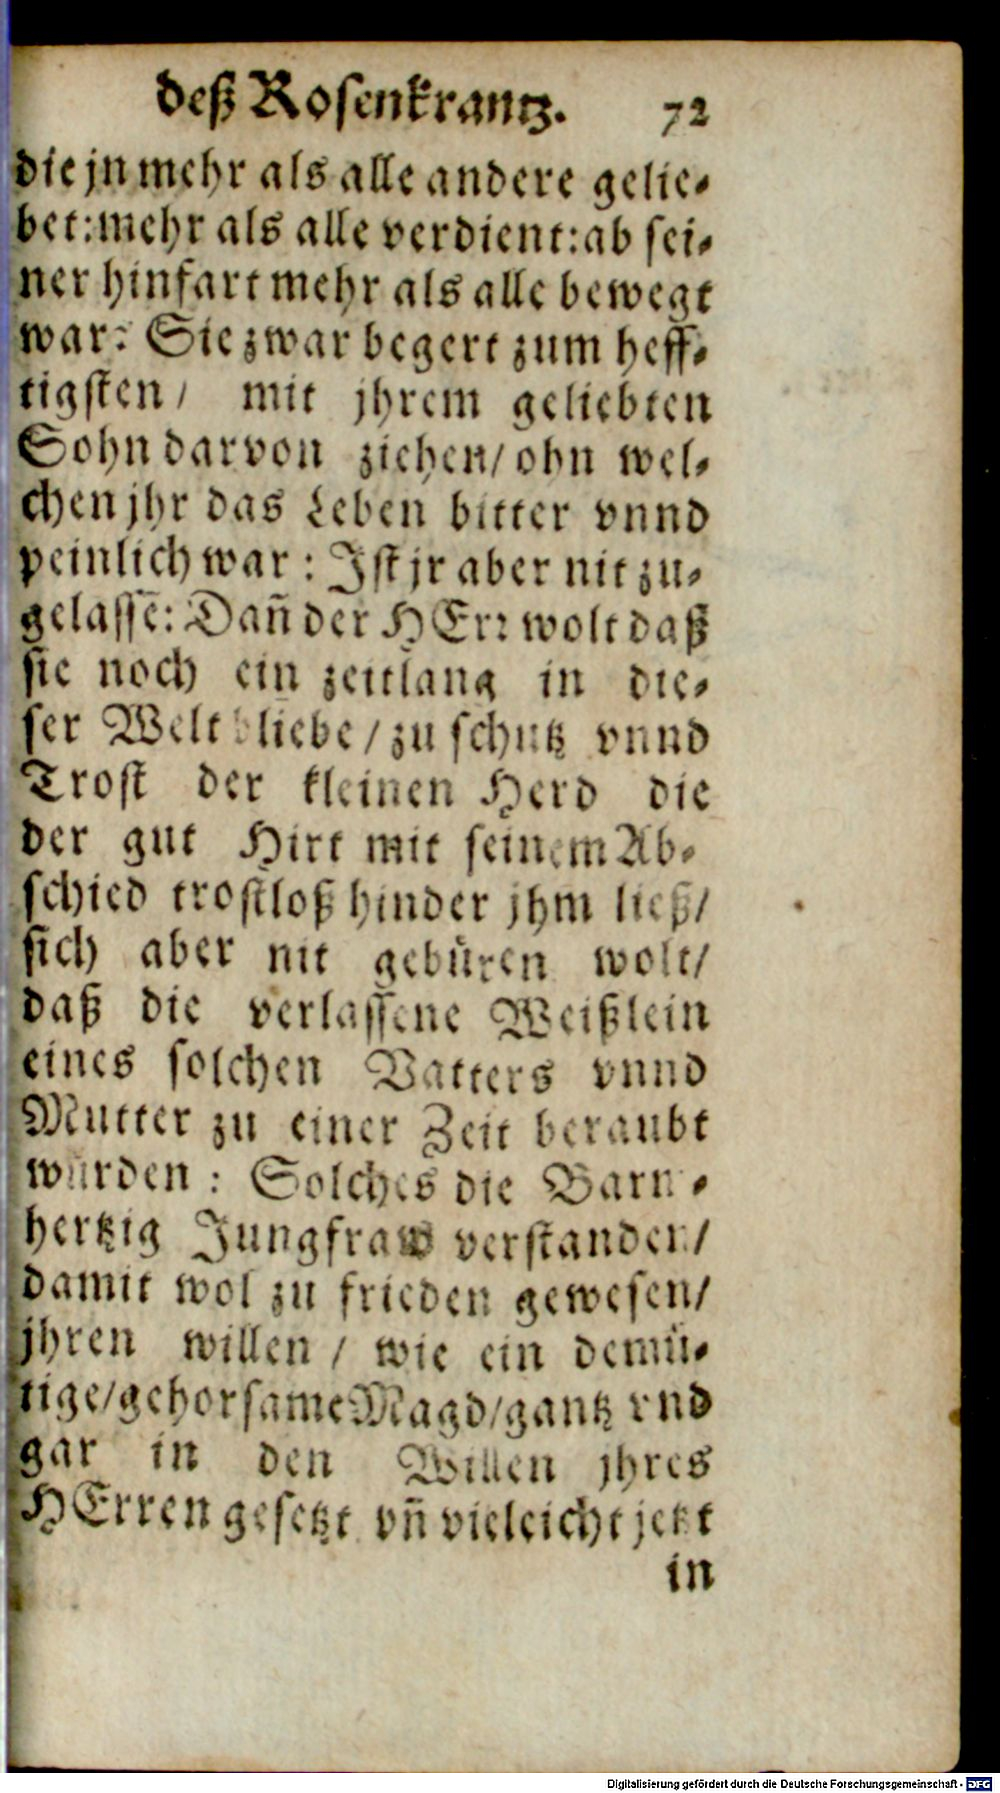 deß Rosenkrantz. 72
die jn mehr als alle andere gelie-
bet: mehr als alle verdient: ab sei-
ner hinfart mehr als alle bewegt
war: Sie zwar begert zum heff-
tigsten / mit jhrem geliebten
Sohn darvon ziehen / ohn wel-
chen jhr das Leben bitter vnnd
peinlich war: Ist jr aber nit zu-
gelassẽ: Dañ der HErr wolt daß
sie noch ein zeitlang in die-
ser Welt bliebe / zu schutz vnnd
Trost der kleinen Herd die
der gut Hirt mit seinem Ab-
schied trostloß hinder jhm ließ /
sich aber nit gebüren wolt /
daß die verlassene Weißlein
eines solchen Vatters vnnd
Mutter zu einer Zeit beraubt
würden: Solches die Barm-
hertzig Jungfraw verstanden /
damit wol zu frieden gewesen /
jhren willen / wie ein demü-
tige / gehorsame Magd / gantz vnd
gar in den Willen jhres
HErren gesetzt vñ vieleicht jetzt
in
Digitalisierung gefördert durch die Deutsche Forschungsgemeinschaft - DFG